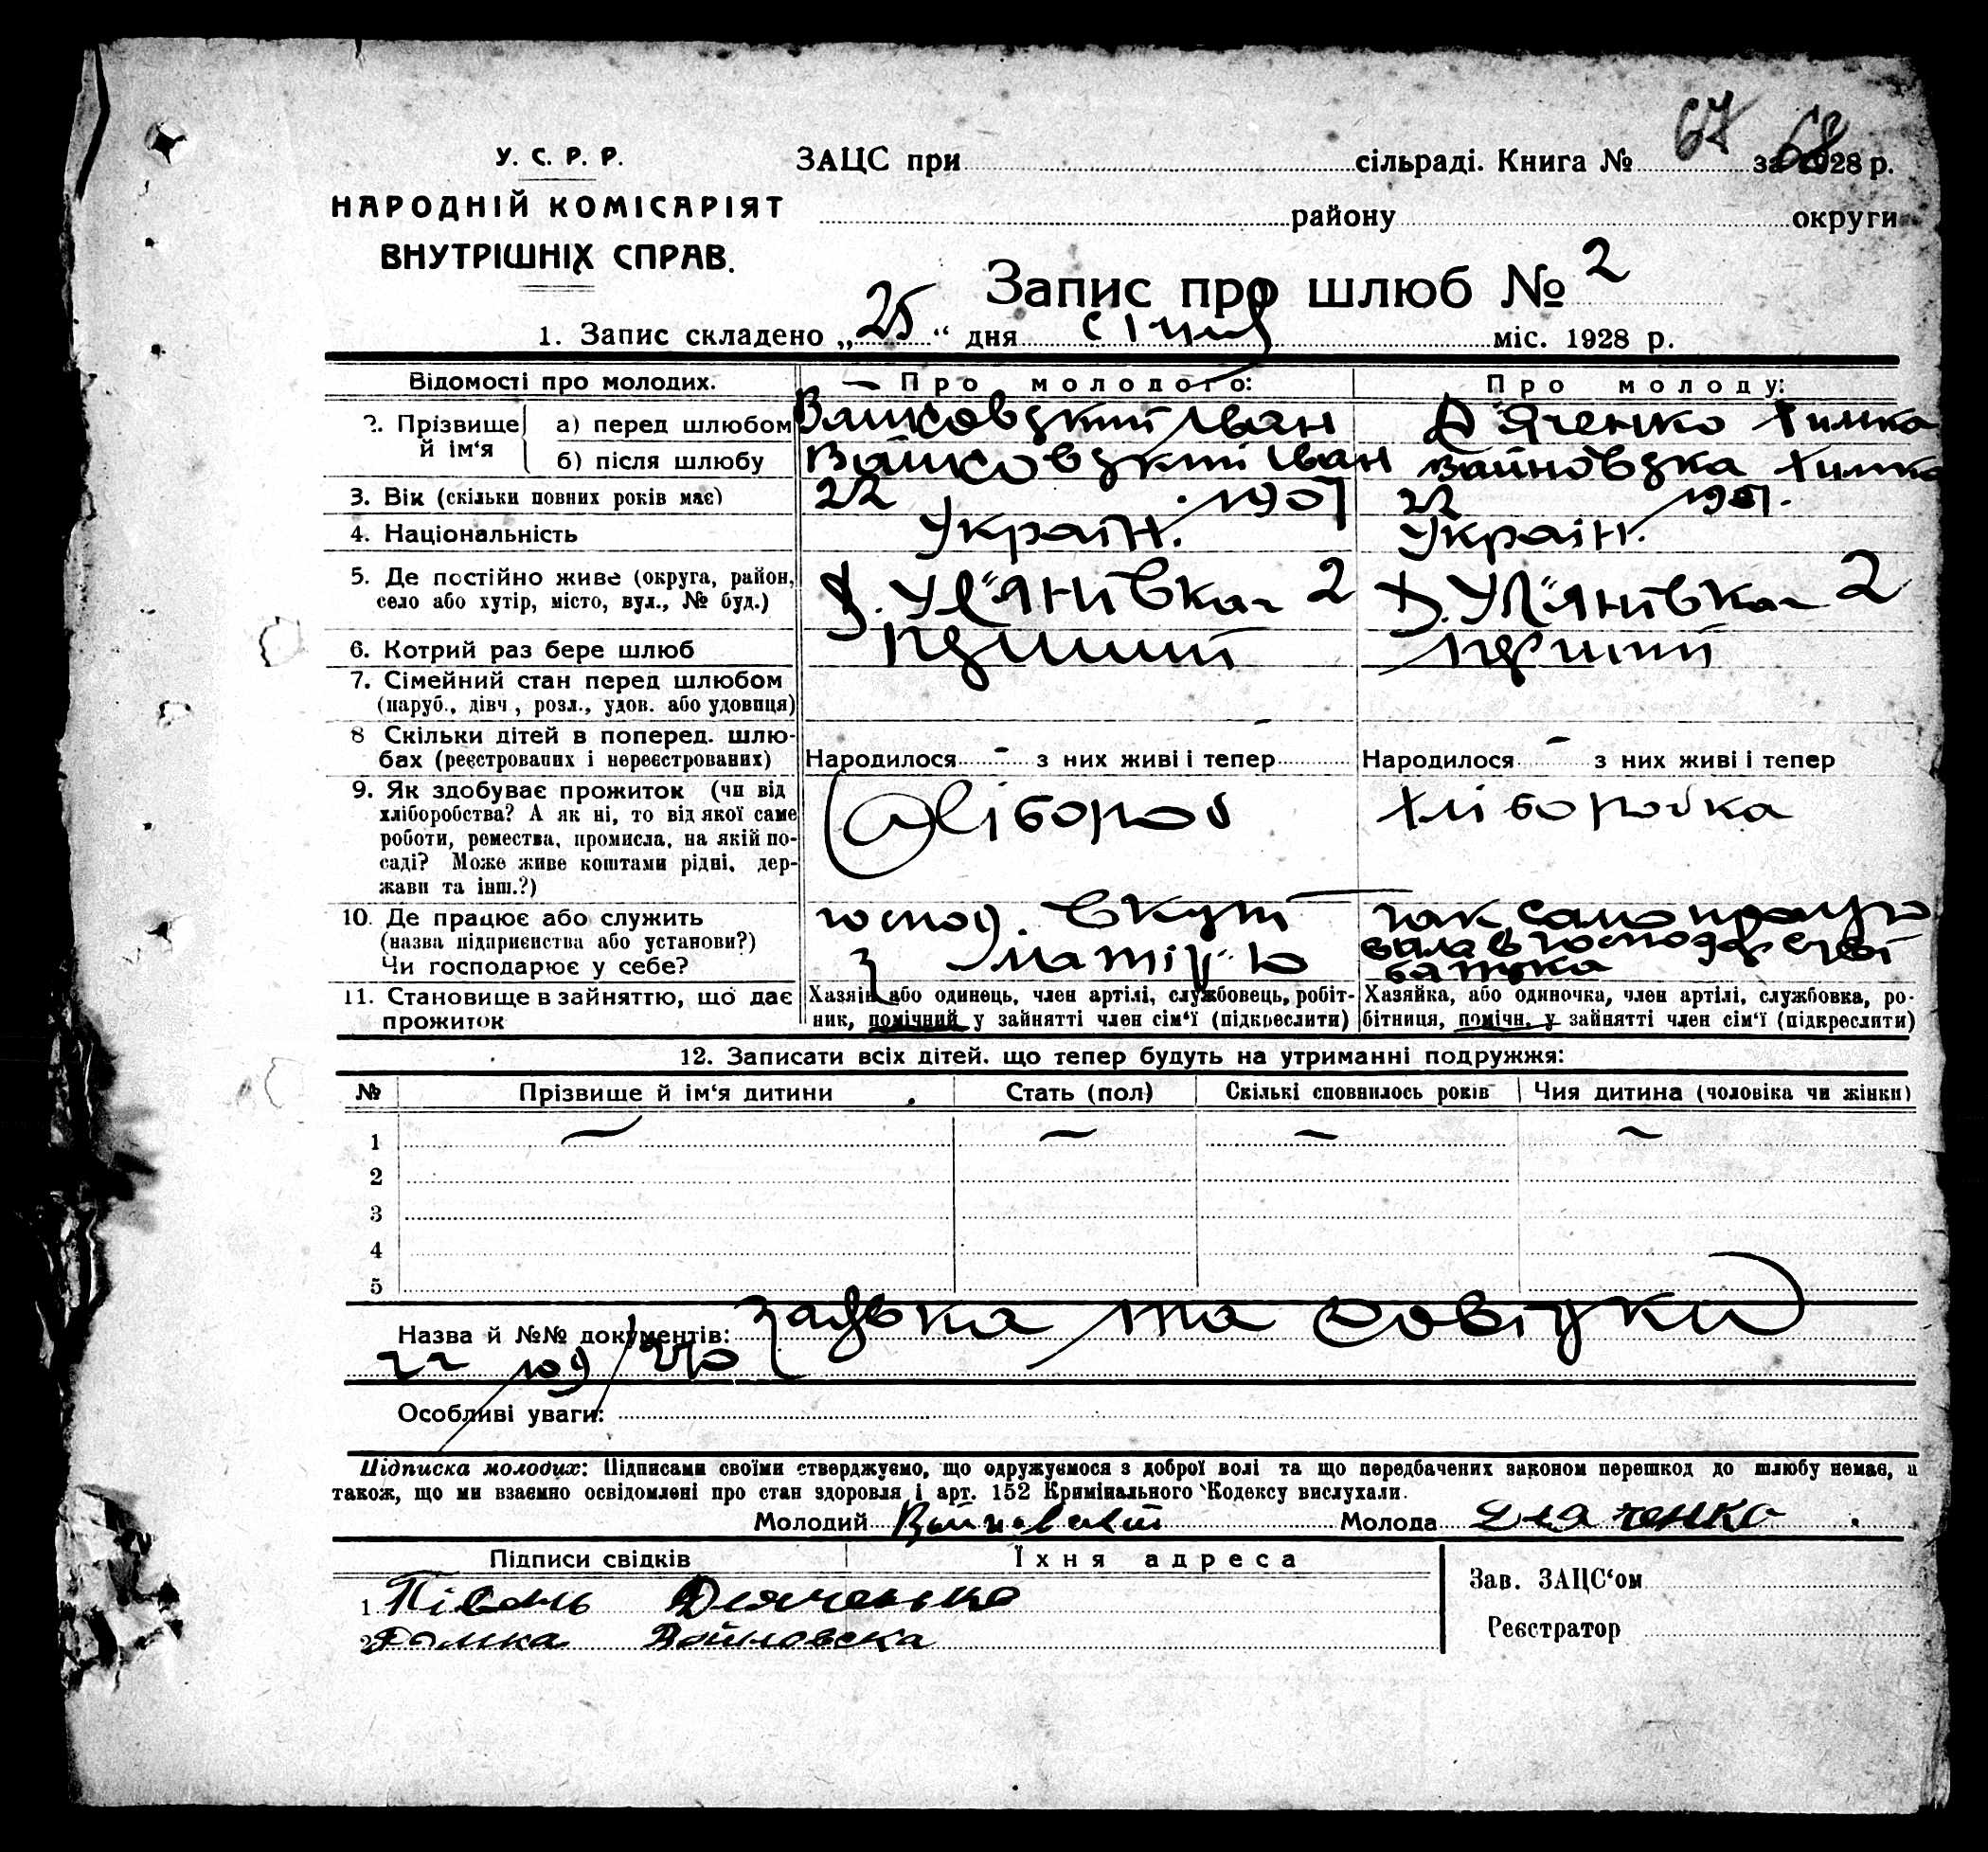 67 68
У. С. Р. Р.
ЗАЦС при сільраді. Книга № за 1928 р.
НАРОДНІЙ КОМІСАРІЯТ
ВНУТРІШНІХ СПРАВ.
району округи
Запис про шлюб № 2
1. Запис складено „25“ дня січня міс. 1928 р.
Відомості про молодих. Про молодого: Про молоду:
2. Прізвище й ім‘я а) перед шлюбом Іван Д'яченко Химка
б) після шлюбу Іван Войновська Химка
3. Вік (скільки повних років має) 22 22
4. Національність Україн. Україн.
5. Де постійно живе (округа, район, село або хутір, місто, вул., № буд.) Ул'янівка 2 Ул'янівка 2
6. Котрий раз бере шлюб перший перший
7. Сімейний стан перед шлюбом
(паруб., дівч., розл., удов. або удовиця)
8 Скільки дітей в поперед. шлю-
бах (реєстрованих і нереєстрованих) Народилося - з них живі і тепер - Народилося - з них живі і тепер
9. Як здобуває прожиток (чи від
хліборобства? А як ні, то від якої саме
роботи, ремества, промисла, на якій по-
саді? Може живе коштами рідні, дер-
жави та інш.?)
Хлібороб Хліборобка
10. Де працює або служить
(назва підприємства або установи?)
Чи господарює у себе?
господ. вкупі
з матірью
так само працю
вала в господарстві
батька
11. Становище в зайняттю, що дає
прожиток
Хазяїн або одинець, член артілі, службовець, робіт-
ник, помічний у зайнятті член сім‘ї (підкреслити)
Хазяйка, або одиночка, член артілі, службовка, ро-
бітниця, помічн. у зайнятті член сім‘ї (підкреслити)
12. Записати всіх дітей, що тепер будуть на утриманні подружжя:
№ Прізвище й ім‘я дитини Стать (пол) Скількі сповнилось років Чия дитина (чоловіка чи жінки)
1 — — — —
2
3
4
5
Назва й №№ документів: заява та довідки
109/270
Особливі уваги:
Підписка молодих: Підписами своїми стверджуємо, що одружуємося з доброї волі та що передбачених законом перешкод до шлюбу немає, а
також, що ми взаємно освідомлені про стан здоровля і арт. 152 Кримінального Кодексу вислухали.
Молодий Войновский Молода Дяченко
Підписи свідків Їхня адреса
Зав. ЗАЦС‘ом
1. Півень Дяченко
Реєстратор
2. Войновска